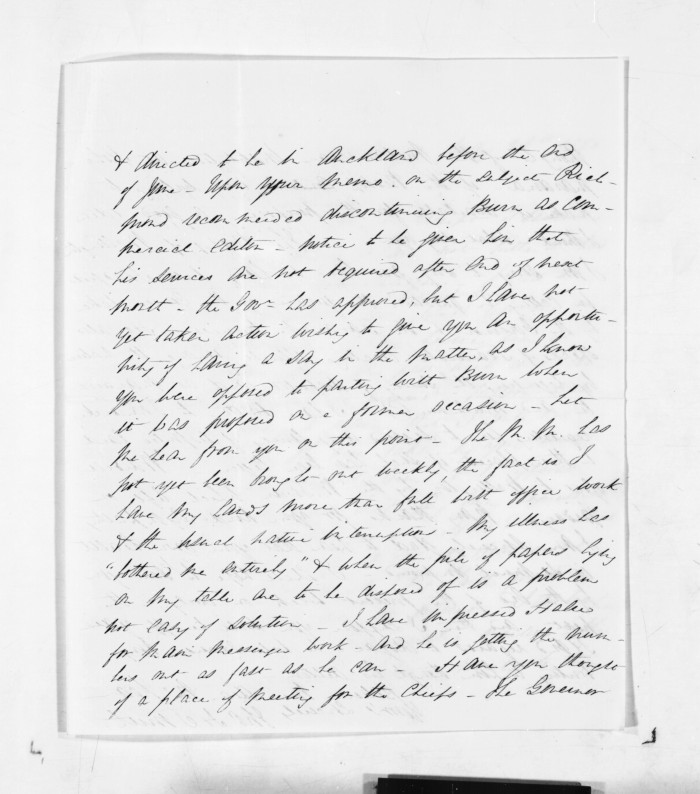 & directed to be in Auckland before the 2nd
of June – Upon your memo. on the subject Rich-
mond recommended discontinuing Burn as Com-
mercial Editor – notice to be given him that
his services are not required after end of next
month – the Govr has approved, but I have not
yet taken action wishing to give you an opportu-
nity of having a say in the matter, as I know
you were opposed to parting with Burn when
it was proposed on a former occasion – Let
me hear from you on this point – The M. M. has
not yet been brought out weekly, the fact is I
have my hands more than full with office work
& the usual native interruptions – My illness has
"bothered me entirely" & when the pile of papers lying
on my table are to be disposed of is a problem
not easy of solution – I have impressed
for Maori Messenger work – and he is getting the num-
bers out as fast as he can – Have you thought
of a place of meeting for the Chiefs – The Governor